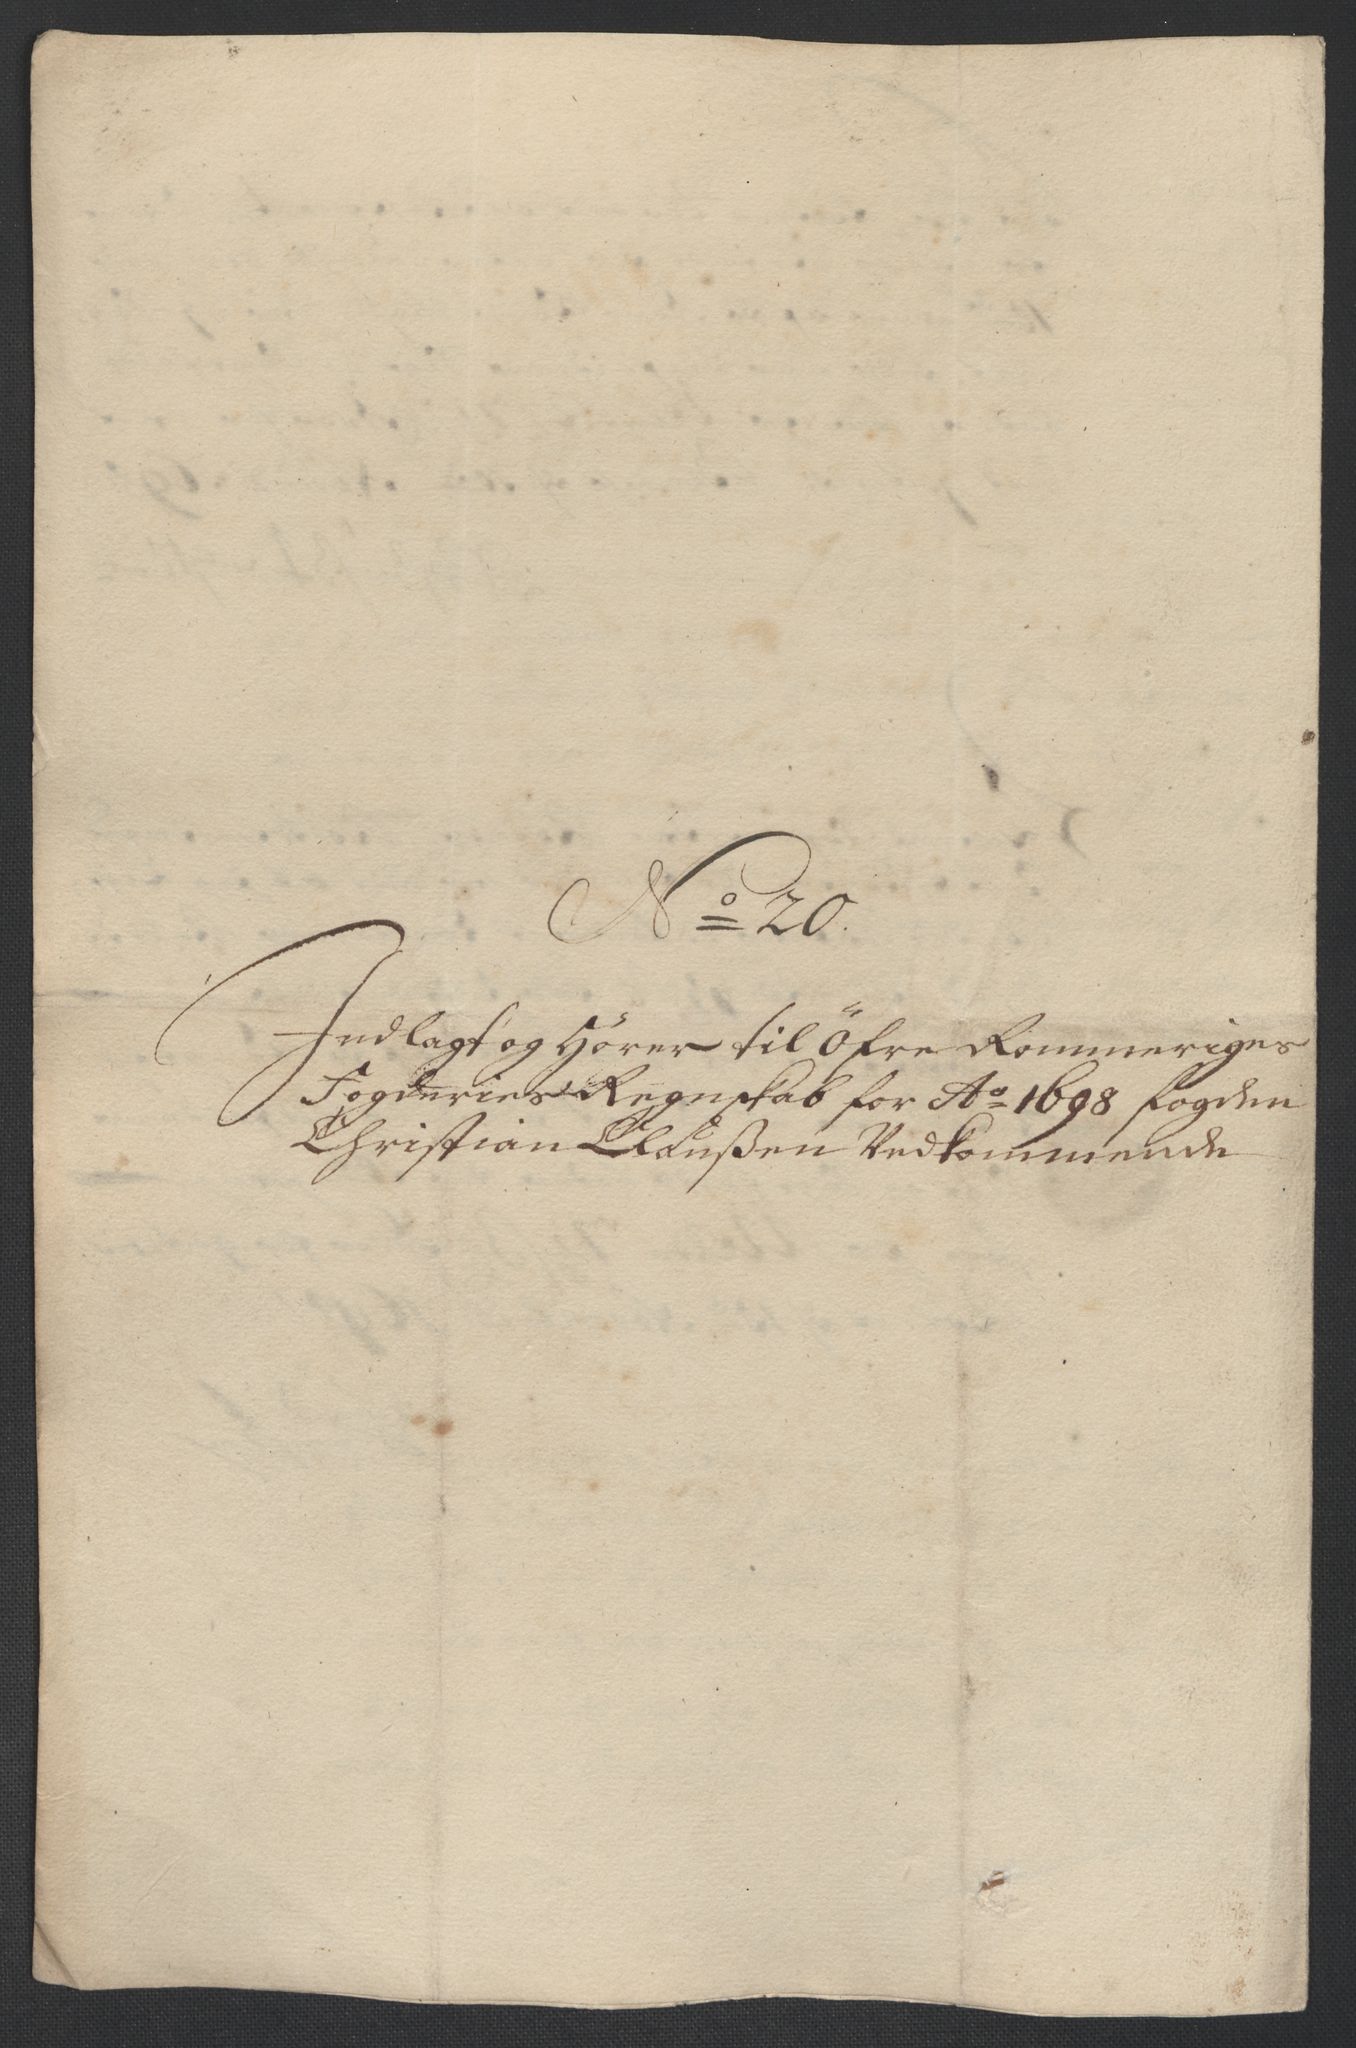 No 20.
Indlagt og Hörer til Öfre Rommeriges
Fogderies Regnskab for Ao 1698 fogden
Christian Claußen Vedkommende